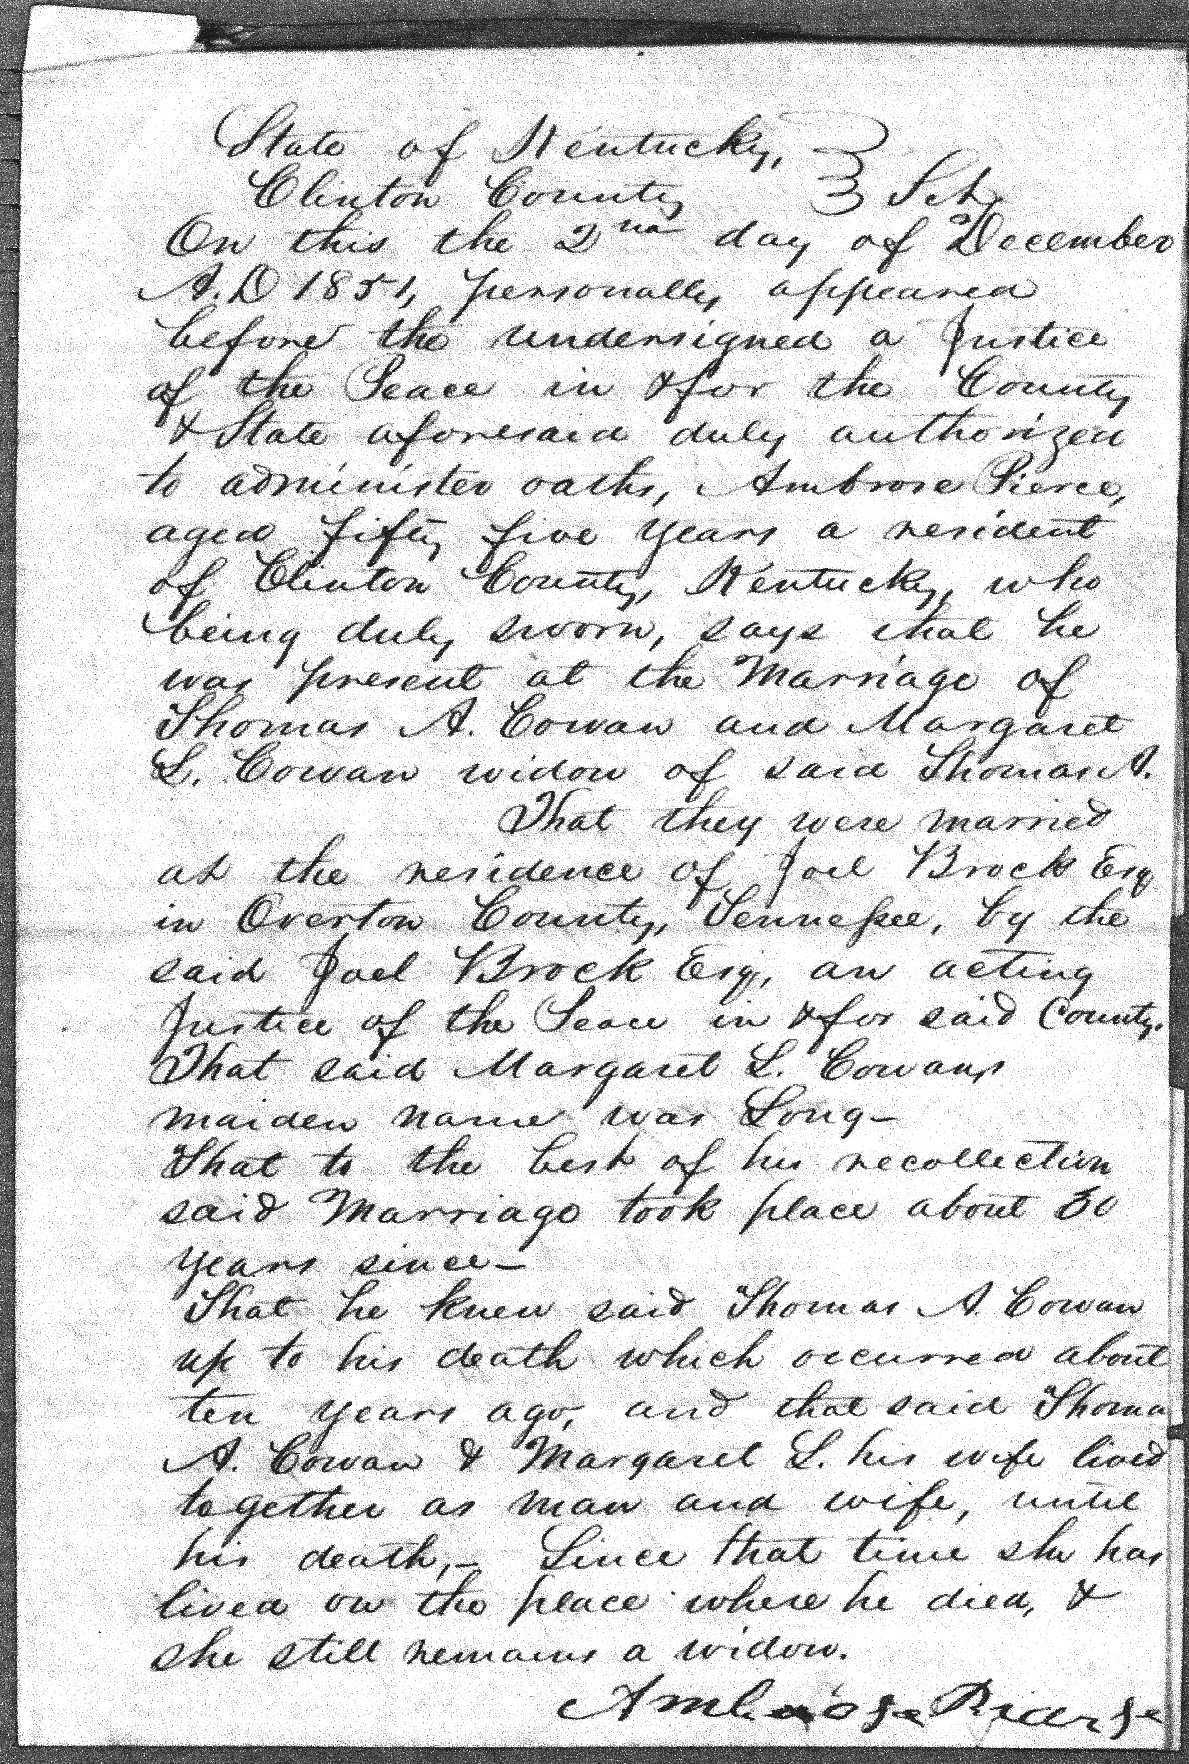 State of Kentucky,
Clinton County } Sct.
On this the 2nd day of December
A.D 1851, personally appeared
before the undersigned a Justice
of the Peace in & for the County
& State aforesaid duly authorized
to administer oaths, Ambrose Pierce,
aged fifty five years a resident
of Clinton County, Kentucky, who
being duly sworn, says that he
was present at the Marriage of
Thomas A. Cowan and Margaret
L. Cowan widow of said Thomas A.
That they were married
at the residence of Joel Brock Esq
in Overton County, Tennessee, by the
said Joel Brock Esq, an acting
Justice of the Peace in & for said County.
That said Margaret L. Cowans
maiden name was Long—
That to the best of his recollection
said Marriage took place about 30
years since—
That he knew said Thomas A. Cowan
up to his death which occurred about
ten years ago, and that said Thoma
A. Cowan & Margaret L. his wife lived
together as man and wife, until
his death,— Since that time she has
lived on the place where he died, &
she still remains a widow.
Ambrose Pearse